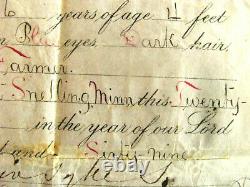 years of age 4 feet
Blue eyes. Dark hair.
Farmer.
Snelling, Minn this Twenty
in the year of our Lord
and Sixty nine